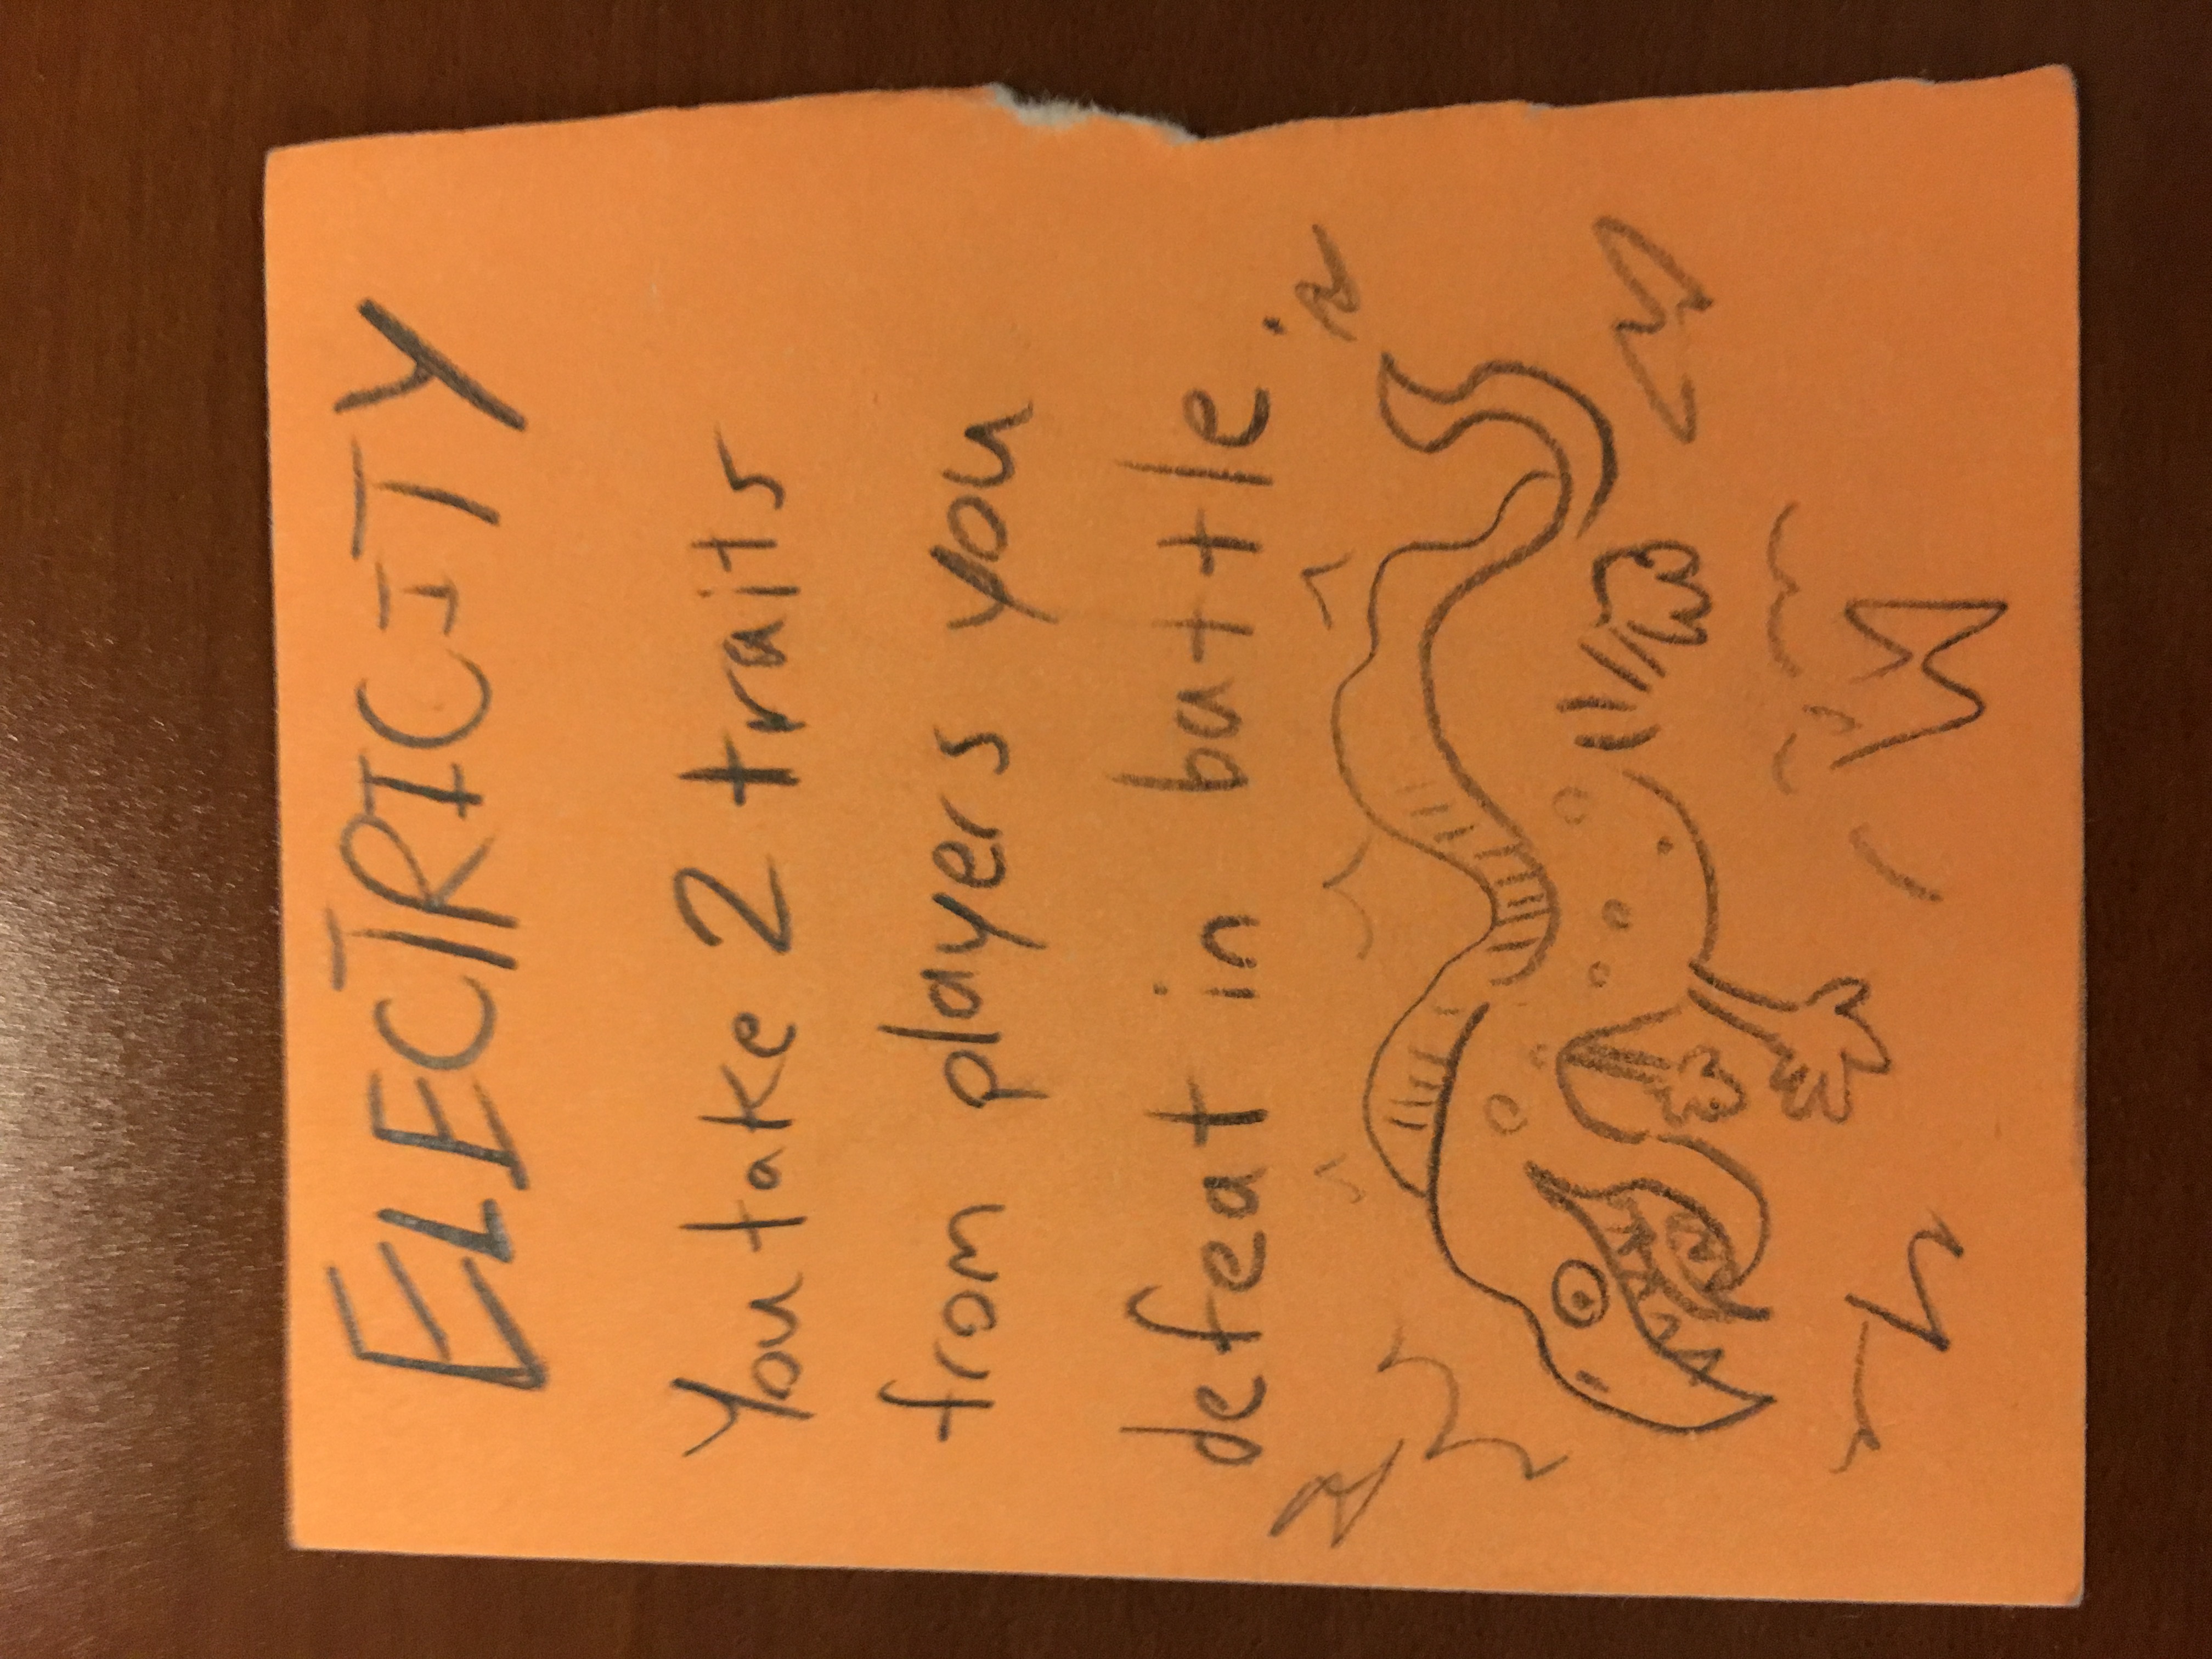 ELECTRICITY
You take 2 traits
from players you
defeat in battle.